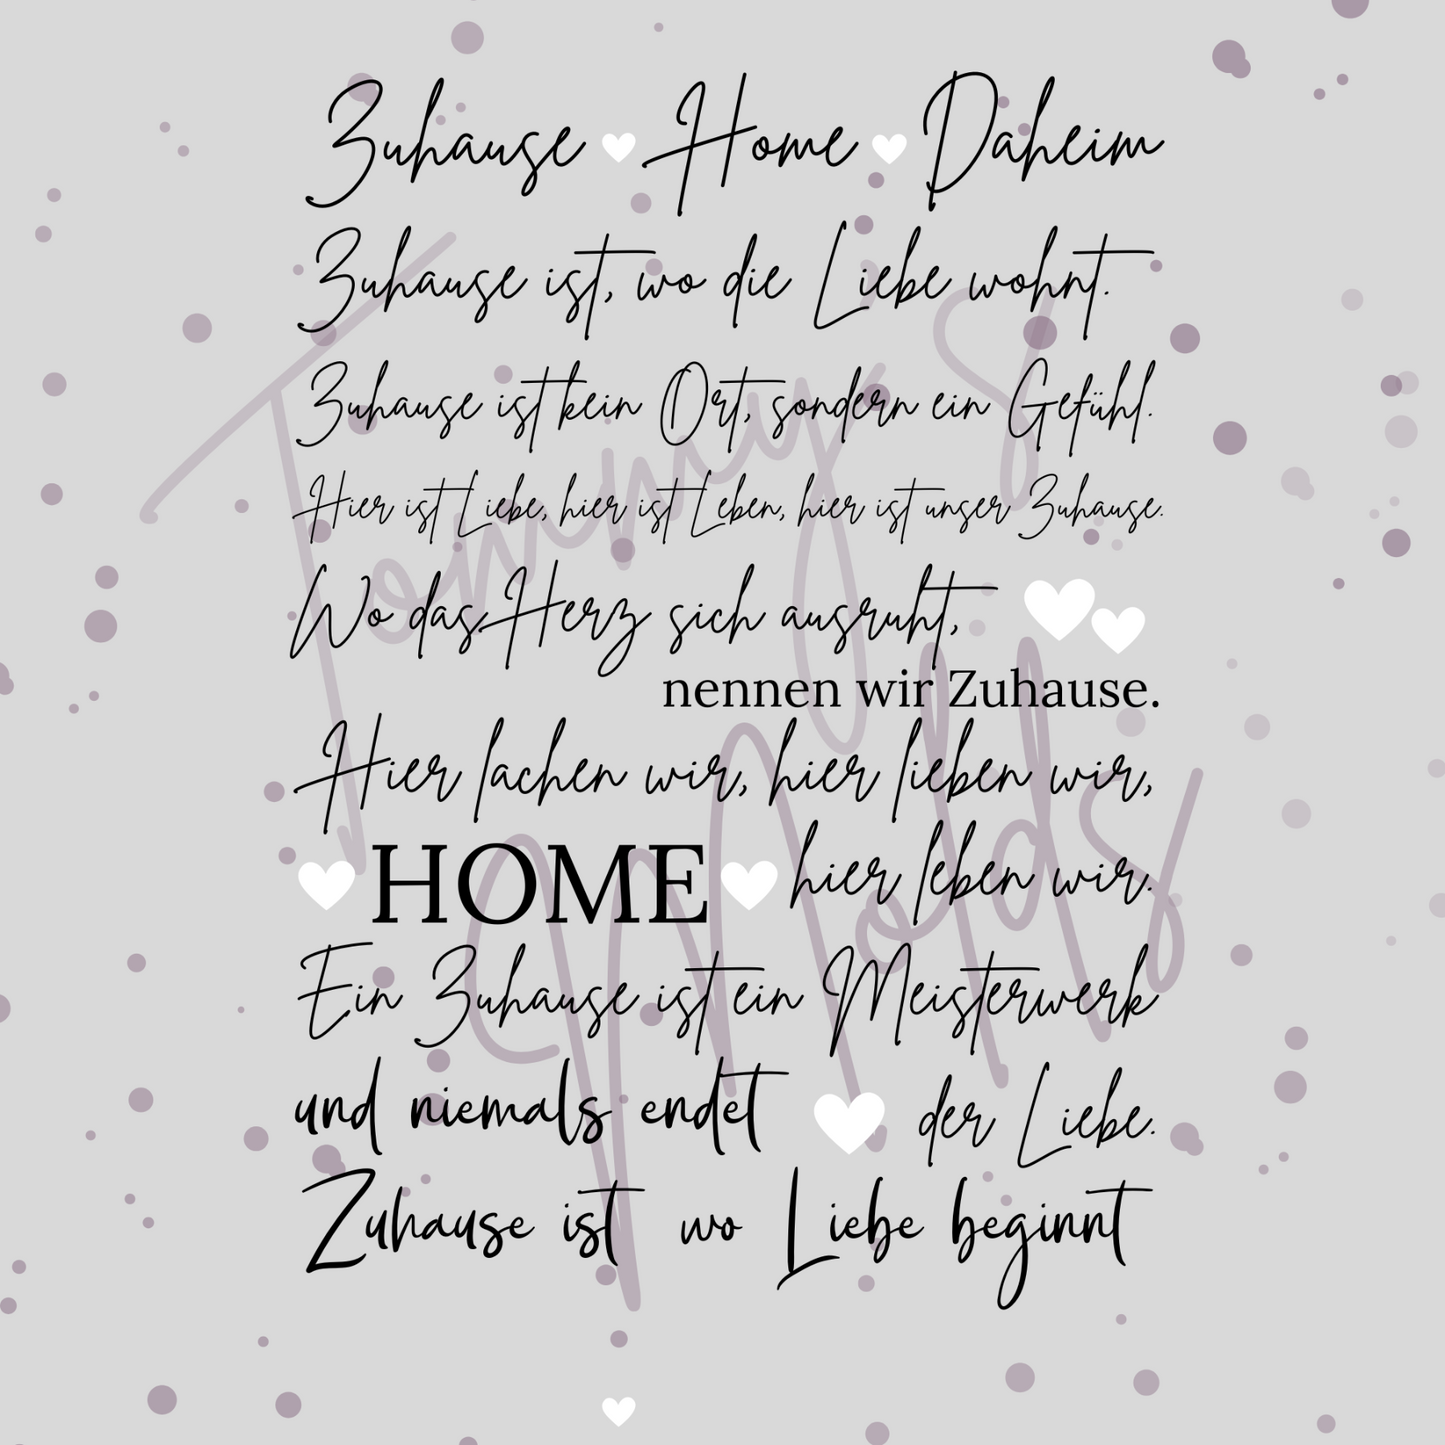 Zuhause Home Daheim
Zuhause ist, wo die Liebe wohnt.
Zuhause ist kein Ort, sondern ein Gefühl.
Hier ist Liebe, hier ist Leben, hier ist unser Zuhause.
Wo das Herz sich ausruht,
nennen wir Zuhause.
Hier lachen wir, hier lieben wir,
HOME hier leben wir.
Ein Zuhause ist ein Meisterwerk
und niemals endet der Liebe.
Zuhause ist wo Liebe beginnt
Tommy's
Molds